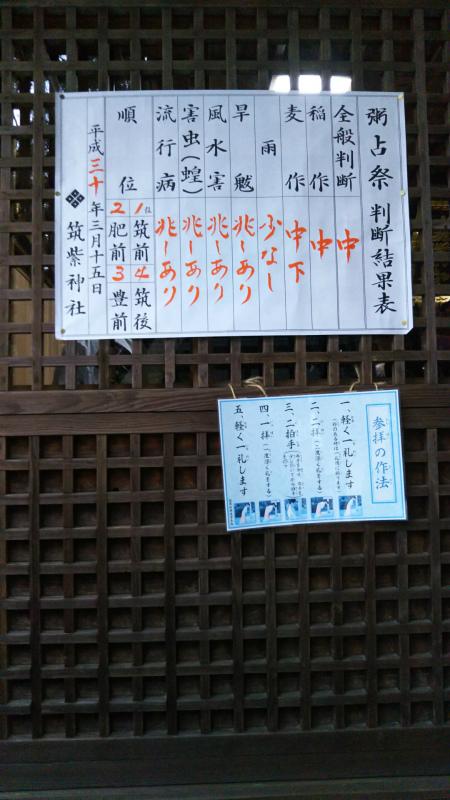 粥占祭 判断結果表
全般判断 中
稲作 中
麦作 中下
雨 少なし
旱魃 兆しあり
風水害 兆しあり
害虫(蝗) 兆しあり
流行病 兆しあり
順位 1位 筑前 4 筑後
2 肥前 3 豊前
平成三十年三月十五日
筑紫神社
参拝の作法
一、軽く一礼します
二、二拝(二度深く礼をする)
三、二拍手
四、一拝(一度深く礼をする)
五、軽く一礼します